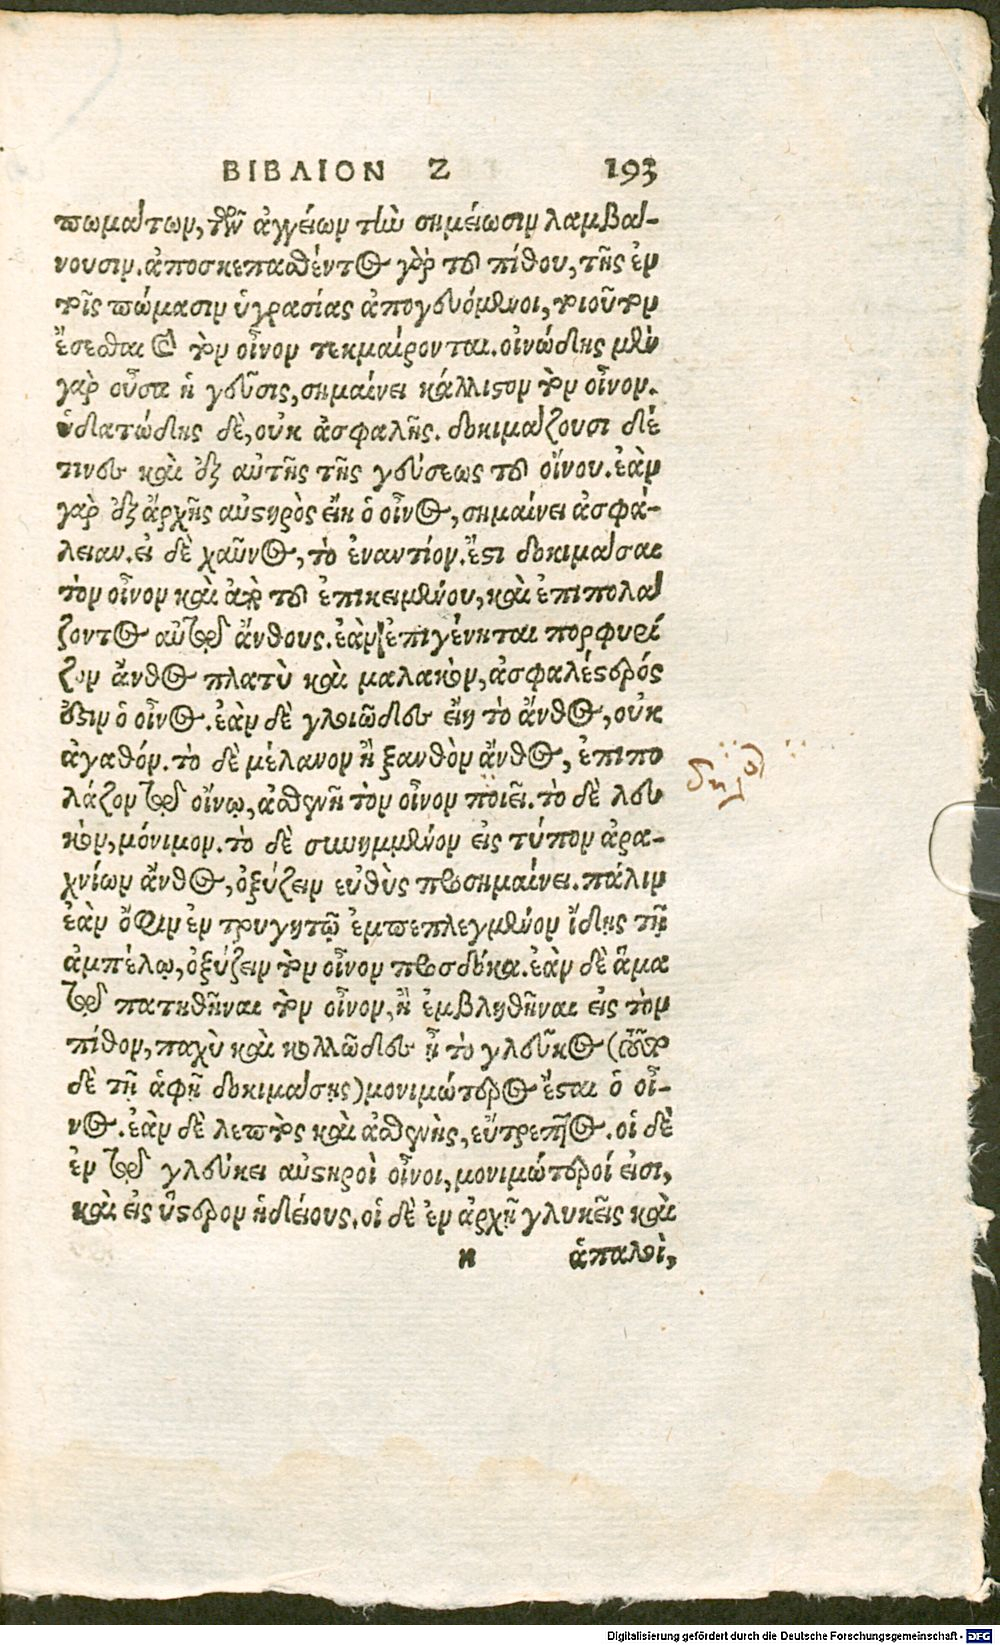 ΒΙΒΛΙΟΝ Ζ 193
πωμάτων, τῶν ἀγγείων τὴν σημείωσιν λαμβά-
νουσιν. ἀποσκεπασθέντος γὰρ τοῦ πίθου, τῆς ἐν
τοῖς πώμασιν ὑγρασίας ἀπογευόμενοι, τοιοῦτον
ἔσεσθαι καὶ τὸν οἶνον τεκμαίρονται. οἰνώδης μὲν
γὰρ οὖσα ἡ γεῦσις, σημαίνει κάλλιστον τὸν οἶνον.
ὑδατώδης δὲ, οὐκ ἀσφαλῆς. δοκιμάζουσι δέ
τινες καὶ ἐξ αὐτῆς τῆς γεύσεως τοῦ οἴνου. ἐὰν
γὰρ ἐξ ἀρχῆς αὐστηρὸς εἴη ὁ οἶνος, σημαίνει ἀσφά-
λειαν. εἰ δὲ χαῦνος, τὸ ἐναντίον. ἔστι δοκιμάσαι
τὸν οἶνον καὶ ἀπὸ τοῦ ἐπικειμένου, καὶ ἐπιπολά
ζοντος αὐτῷ ἄνθους. ἐὰν ἐπιγένηται πορφυρί
ζον ἄνθος πλατὺ καὶ μαλακὸν, ἀσφαλέστερός
ἐστιν ὁ οἶνος. ἐὰν δὲ γλοιῶδες εἴη τὸ ἄνθος, οὐκ
ἀγαθόν. τὸ δὲ μέλανον ἢ ξανθὸν ἄνθος, ἐπιπο
λάζον τῷ οἴνῳ, ἀσθενῆ τὸν οἶνον ποιεῖ. τὸ δὲ λευ
κὸν, μόνιμον. τὸ δὲ συνημμένον εἰς τύπον ἀρα-
χνίων ἄνθος, ὀξύζειν εὐθὺς προσημαίνει. πάλιν
ἐὰν ὄφιν ἐν τρυγητῷ ἐμπεπλεγμένον ἴδῃς τῇ
ἀμπέλῳ, ὀξύζειν τὸν οἶνον προσδόκα. ἐὰν δὲ ἅμα
τῷ πατηθῆναι τὸν οἶνον, ἢ ἐμβληθῆναι εἰς τὸν
πίθον, παχὺ καὶ κολλῶδες ᾖ τὸ γλεῦκος (τοῦτο
δὲ τῇ ἁφῇ δοκιμάσῃς) μονιμώτερος ἔσται ὁ οἶ-
νος. ἐὰν δὲ λεπτὸς καὶ ἀσθενὴς, εὔτρεπτος. οἱ δὲ
ἐν τῷ γλεύκει αὐστηροὶ οἶνοι, μονιμώτεροί εἰσι,
καὶ εἰς ὕστερον ἡδείους. οἱ δὲ ἐν ἀρχῇ γλυκεῖς καὶ
n ἁπαλοὶ,
Digitalisierung gefördert durch die Deutsche Forschungsgemeinschaft - DFG